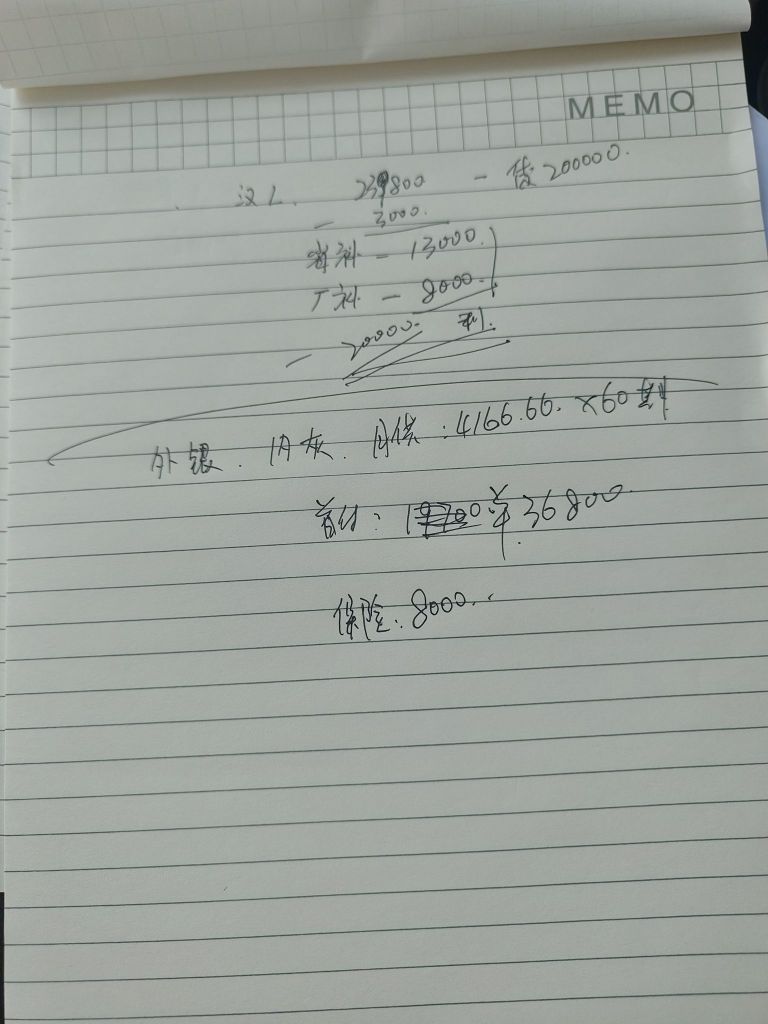 MEMO
汉L. 239800 - 贷200000.
- 3000.
省补 - 13000.
厂补 - 8000.
- 20000. 利.
外银. 内灰. 月供: 4166.66. ×60期
首付: 36800
保险: 8000..